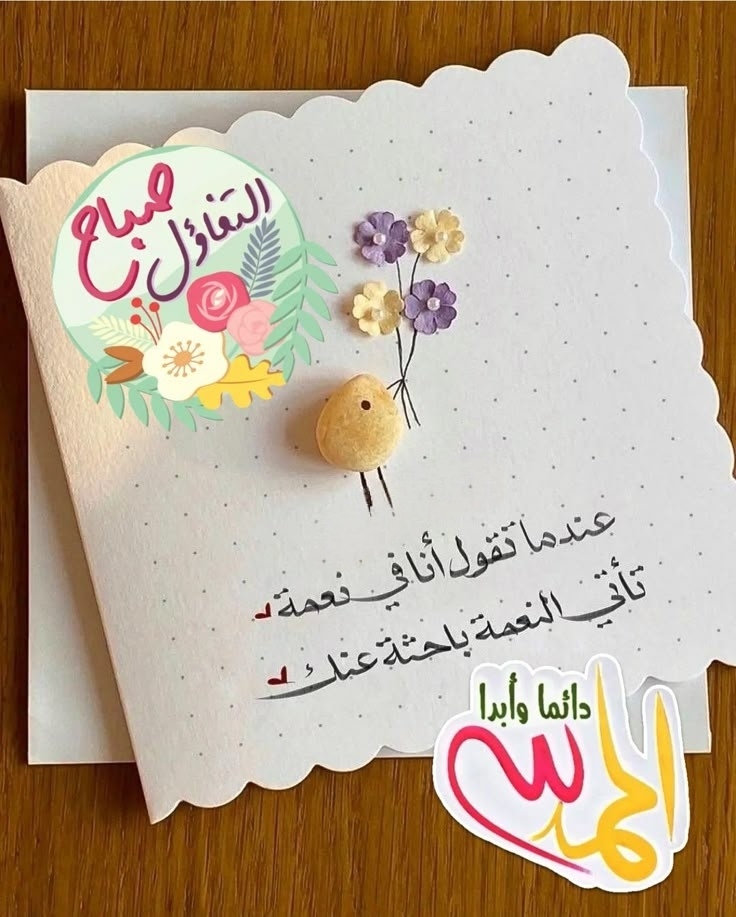 صباح
التفاؤل
عندما تقول أنا في نعمة
تأتي النعمة باحثة عنك
دائما وأبدا
الحمد لله